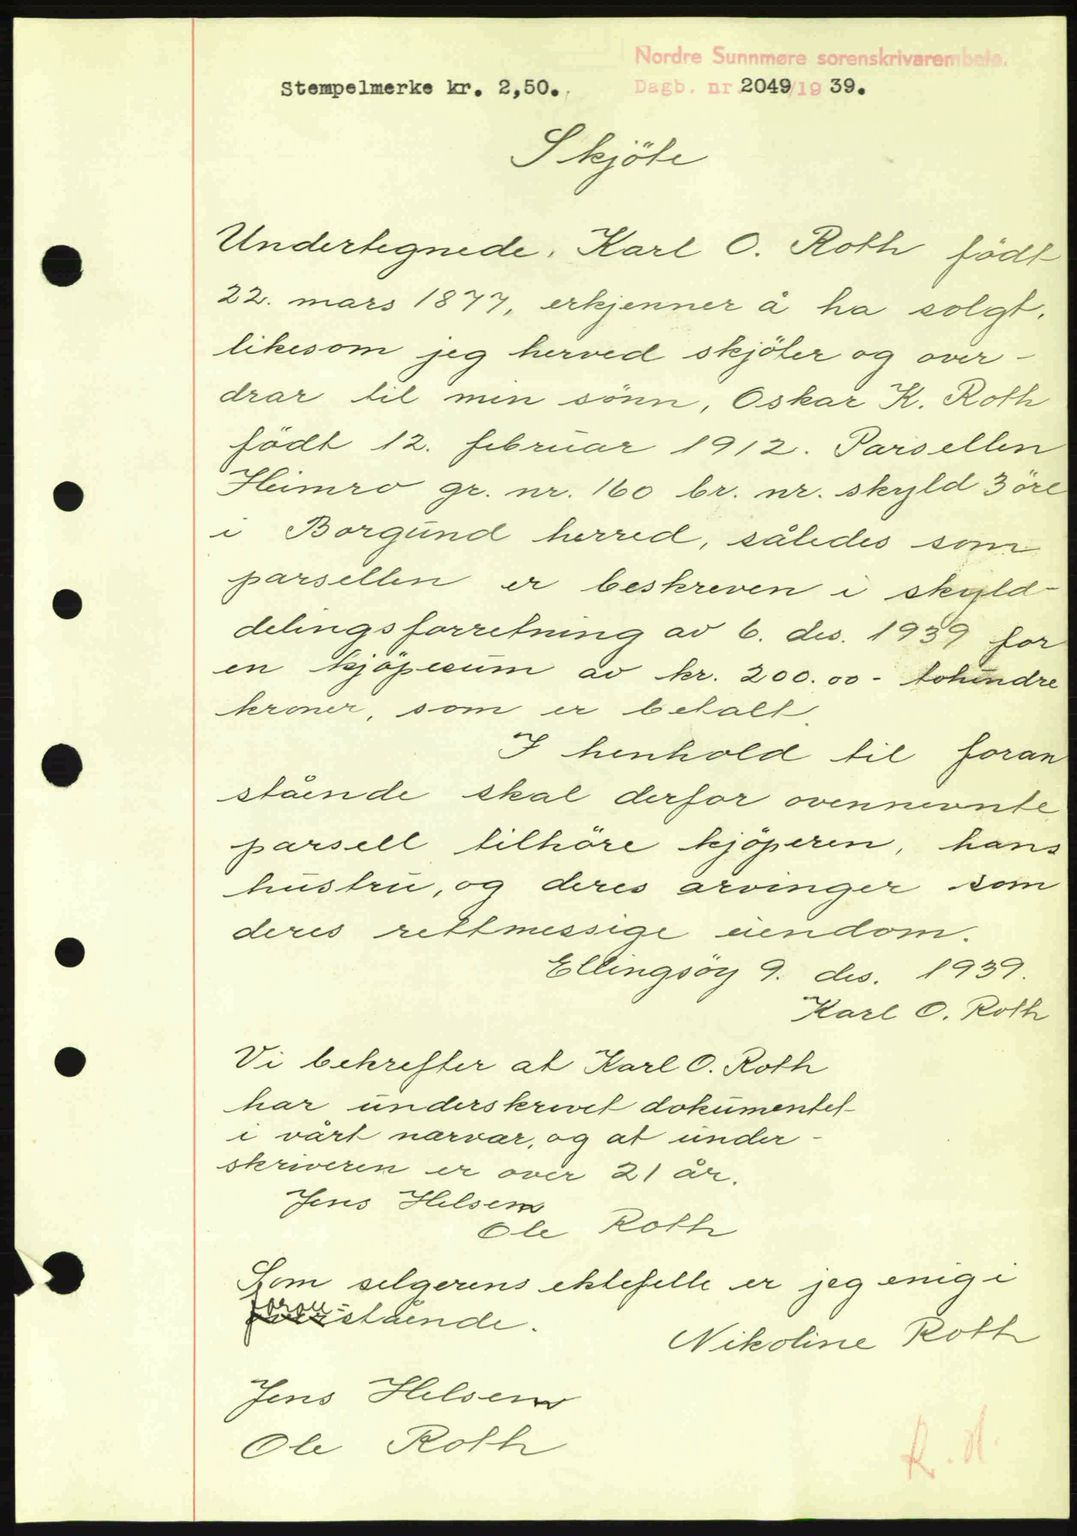 Nordre Sunnmøre sorenskrivarembete.
Stempelmerke kr. 2,50. Dagb. nr 2049/19 39.
Skjöte
Undertegnede, Karl O. Roth födt
22. mars 1877, erkjenner å ha solgt,
likesom jeg herved skjöter og over-
drar til min sönn, Oskar K. Roth
födt 12. februar 1912. Parsellen
Heimro gr. nr. 160 br. nr. skyld 3 öre
i Borgund herred, således som
parsellen er beskreven i skyld-
delingsforretning av 6. des. 1939 for
en kjöpesum av kr. 200.00 - tohundre
kroner, som er betalt.
I henhold til foran
stående skal derfor ovennevnte
parsell tilhöre kjöperen, hans
hustru, og deres arvinger som
deres rettmessige eiendom.
Ellingsöy 9. des. 1939.
Karl O. Roth
Vi bekrefter at Karl O. Roth
har underskrevet dokumentet
i vårt nærvær, og at under-
skriveren er over 21 år.
Jens Helsem
Ole Roth
Som selgerens ektefelle er jeg enig i
foran-stående.
Nikoline Roth
Jens Helsem
Ole Roth
R. d.